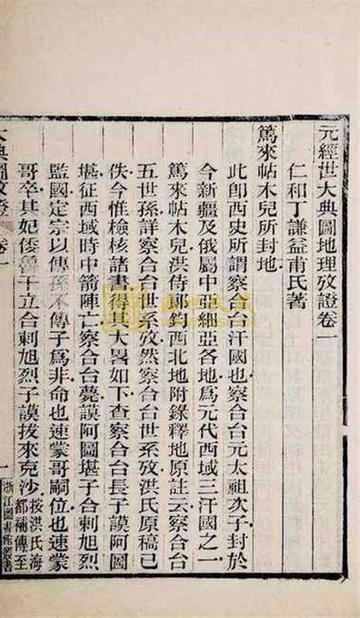 元經世大典圖地理攷證卷一
仁和丁謙益甫氏著
篤來帖木兒所封地
此卽西史所謂察合台汗國也察合台元太祖次子封於
今新疆及俄屬中亞細亞各地爲元代西域三汗國之一
篤來帖木兒洪侍郎鈞西北地附錄釋地原註云察合台
五世孫詳察合台世系攷然察合台世系攷洪氏原稿已
佚今惟檢核諸書得其大畧如下查察合台長子謨阿圖
堪征西域時中箭陣亡察合台薨謨阿圖堪子合剌旭烈
監國定宗以傳孫不傳子爲非命也速蒙哥嗣位也速蒙
哥卒其妃倭魯干立合剌旭烈子謨拔來克沙按洪氏海都補傳至
大典圖攷證 卷一
一
浙江圖書館叢書